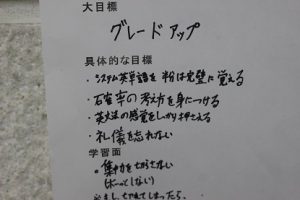 大目標
グレードアップ
具体的な目標
・システム英単語を 粉は完璧に覚える
・確率の考え方を身につける
・英文法の感覚をしっかり押さえる
・礼儀を忘れない
学習面
集中力を切らさない
(ぼーっとしない)